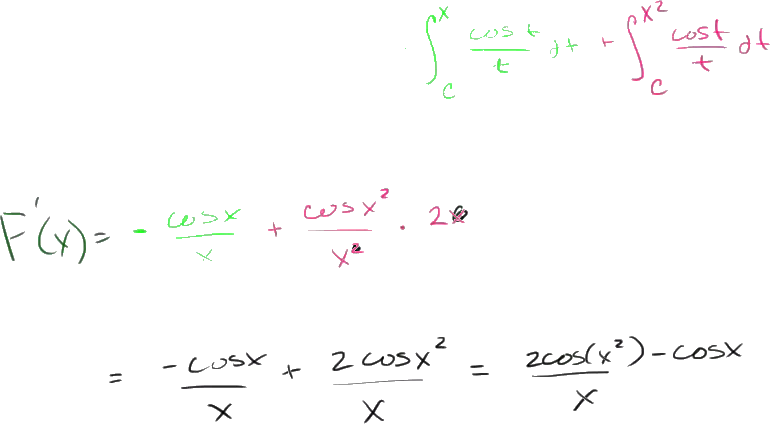 ∫_c^x cos t / t dt + ∫_c^{x²} cos t / t dt
F'(x) = - cos x / x + cos x² / x² · 2x
= -cos x / x + 2 cos x² / x = 2cos(x²) - cos x / x